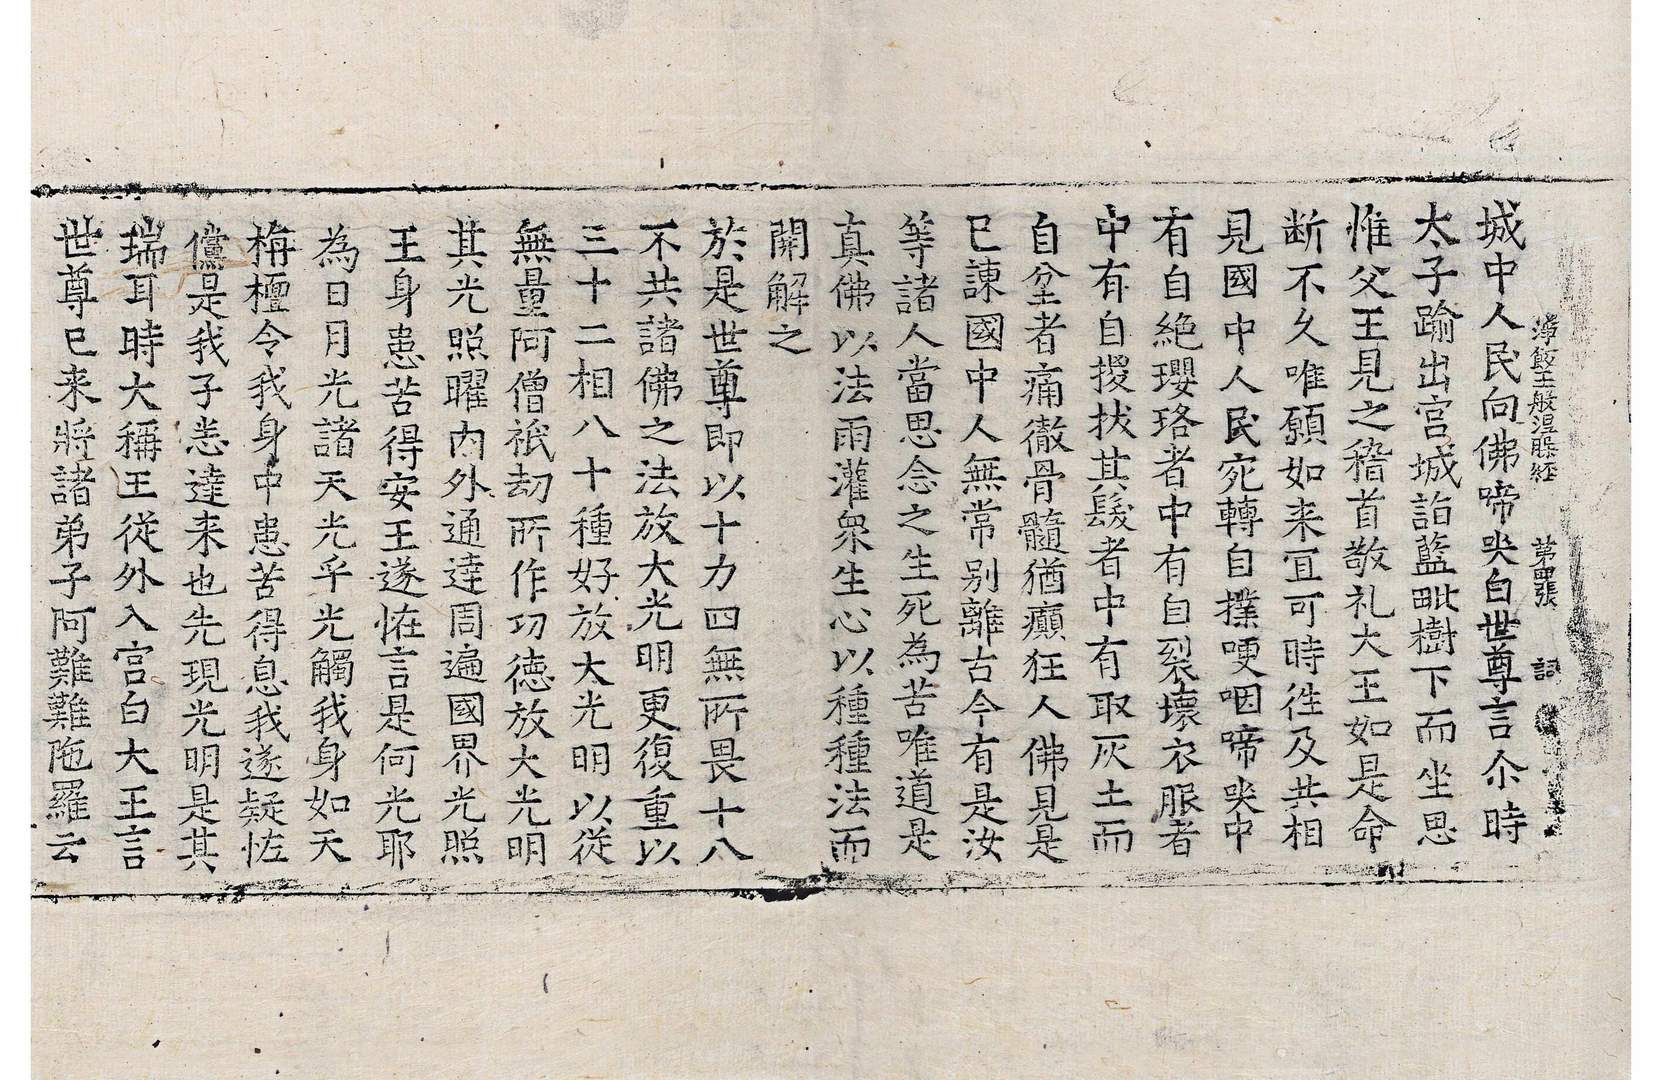 淨飯王般涅槃經 第四張 詞
城中人民向佛啼哭白世尊言尒時
太子踰出宮城詣藍毗樹下而坐思
惟父王見之稽首敬礼大王如是命
断不久唯願如来冝可時徃及共相
見國中人民宛轉自撲哽咽啼哭中
有自絶瓔珞者中有自裂壞衣服者
中有自揬拔其髮者中有取灰土而
自坌者痛徹骨髓猶癲狂人佛見是
已諫國中人無常别離古今有是汝
等諸人當思念之生死為苦唯道是
真佛以法雨灌衆生心以種種法而
開解之
於是世尊即以十力四無所畏十八
不共諸佛之法放大光明更復重以
三十二相八十種好放大光明以從
無量阿僧祇劫所作功徳放大光明
其光照曜内外通達周遍國界光照
王身患苦得安王遂恠言是何光耶
為日月光諸天光乎光觸我身如天
栴檀令我身中患苦得息我遂疑恠
儻是我子悉達来也先現光明是其
瑞耳時大稱王従外入宫白大王言
世尊已来將諸弟子阿難難陁羅云